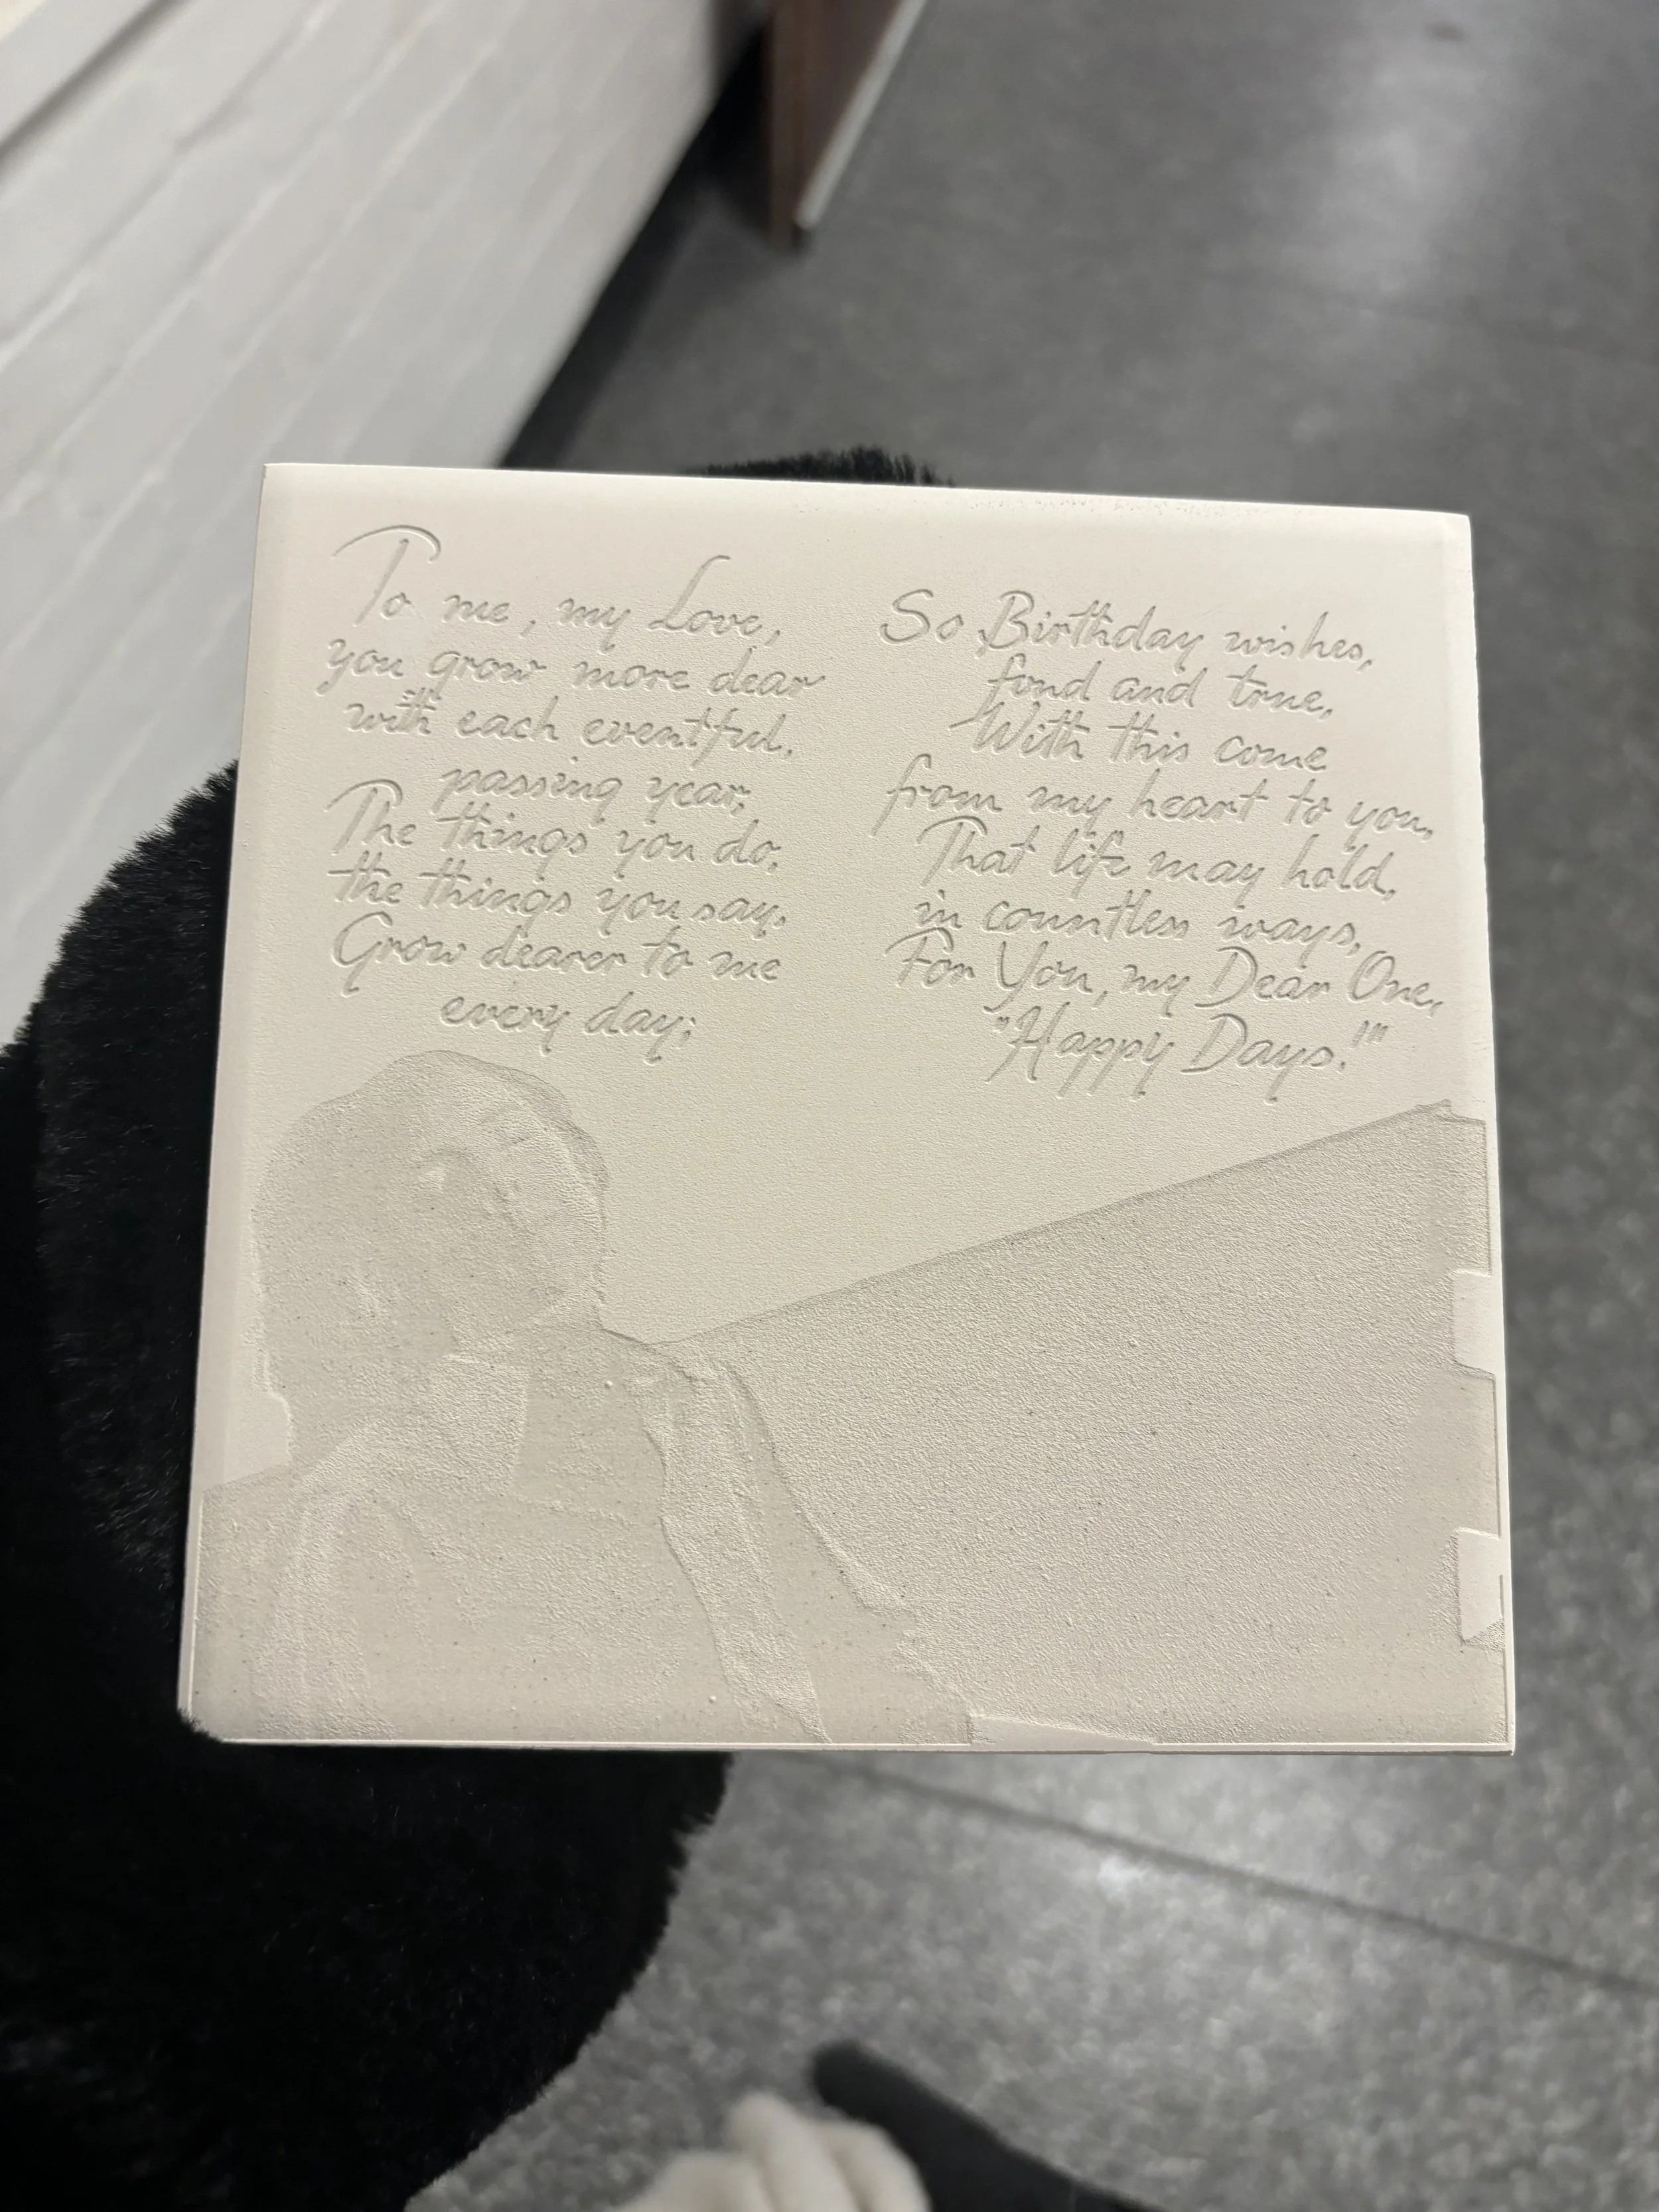 To me, my Love,
you grow more dear
with each eventful,
passing year;
The things you do,
the things you say,
Grow dearer to me
every day;
So Birthday wishes,
fond and true,
With this come
from my heart to you,
That life may hold,
in countless ways,
For You, my Dear One,
"Happy Days!"